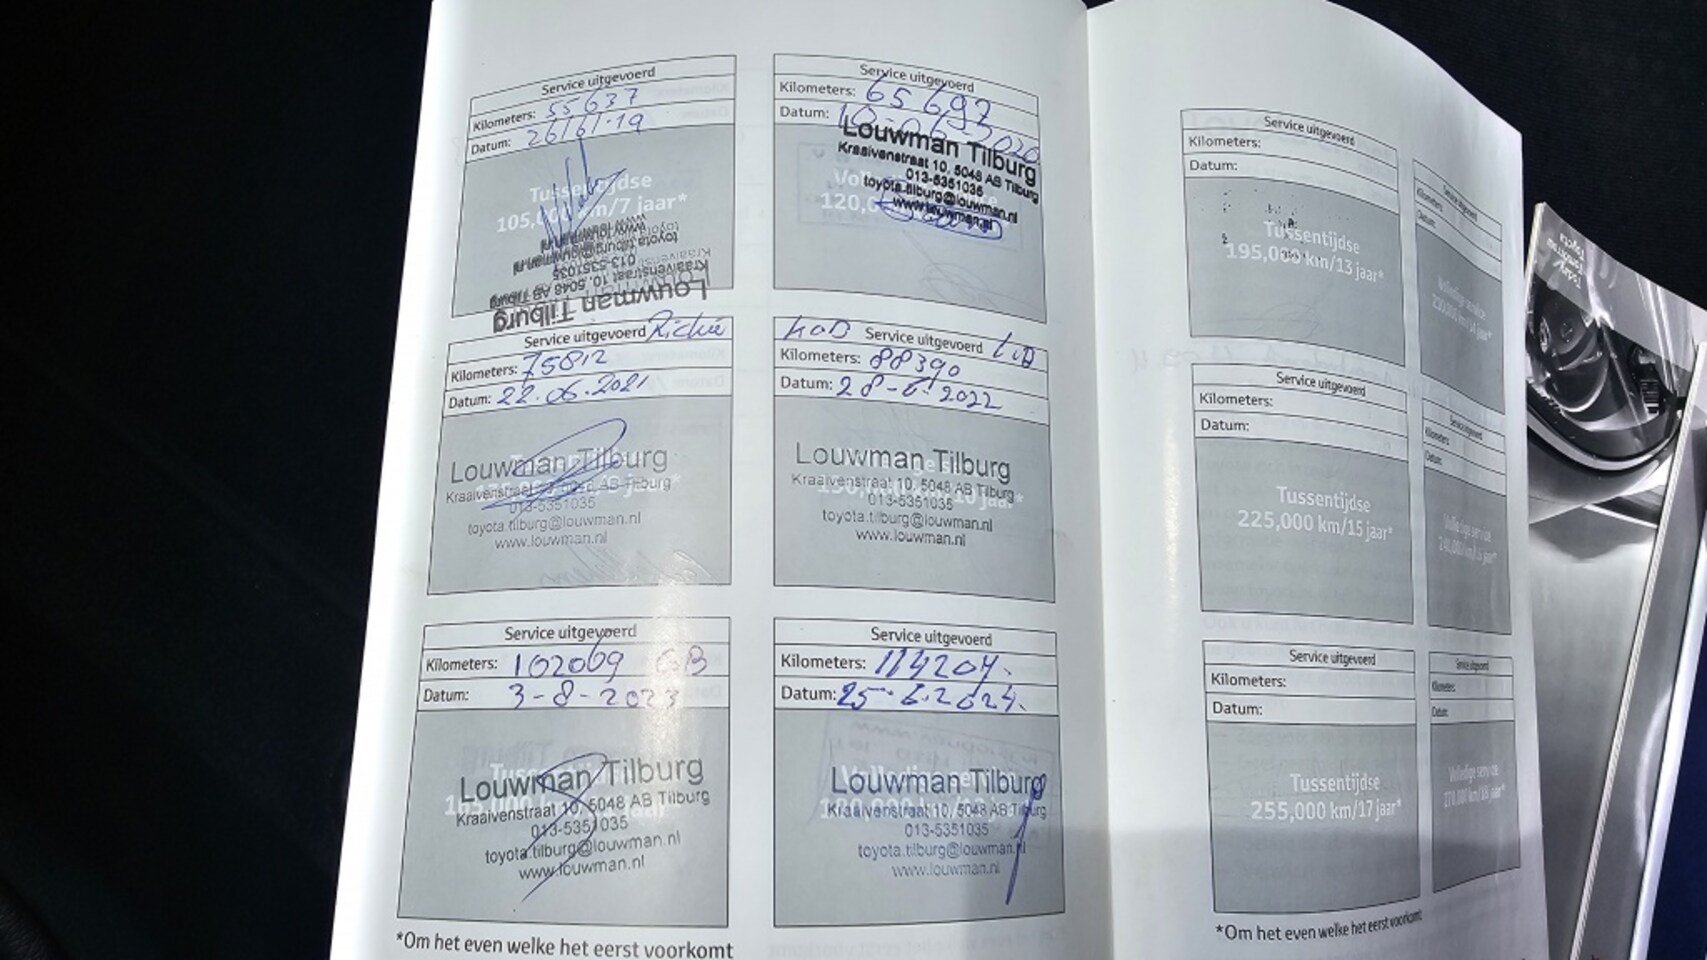 Service uitgevoerd
Kilometers: 55637
Datum: 26/6/19
Tussentijdse
105,000 km/7 jaar*
www.louwman.nl
toyota.tilburg@louwman.nl
013-5351035
Kraaivenstraat 10, 5048 AB Tilburg
Louwman Tilburg
Service uitgevoerd
Kilometers: 65697
Datum: 10-06-2020
Louwman Tilburg
Kraaivenstraat 10, 5048 AB Tilburg
013-5351035
toyota.tilburg@louwman.nl
www.louwman.nl
120,0
Service uitgevoerd Richie
Kilometers: 75812
Datum: 22.06.2021
Louwman Tilburg
Kraaivenstraat 10, 5048 AB Tilburg
013-5351035
toyota.tilburg@louwman.nl
www.louwman.nl
Service uitgevoerd
Kilometers: 88390
Datum: 28-6-2022
Louwman Tilburg
Kraaivenstraat 10, 5048 AB Tilburg
013-5351035
toyota.tilburg@louwman.nl
www.louwman.nl
Service uitgevoerd
Kilometers: 102069
Datum: 3-8-2023
Louwman Tilburg
Kraaivenstraat 10, 5048 AB Tilburg
013-5351035
toyota.tilburg@louwman.nl
www.louwman.nl
Service uitgevoerd
Kilometers: 114204.
Datum: 25.6.2024.
Louwman Tilburg
Kraaivenstraat 10, 5048 AB Tilburg
013-5351035
toyota.tilburg@louwman.nl
www.louwman.nl
*Om het even welke het eerst voorkomt
Service uitgevoerd
Kilometers:
Datum:
Tussentijdse
195,000 km/13 jaar*
Service uitgevoerd
Kilometers:
Datum:
Volledige service
Service uitgevoerd
Kilometers:
Datum:
Tussentijdse
225,000 km/15 jaar*
Service uitgevoerd
Kilometers:
Datum:
Volledige service
Service uitgevoerd
Kilometers:
Datum:
Tussentijdse
255,000 km/17 jaar*
Service uitgevoerd
Kilometers:
Datum:
Volledige service
270,000 km/18 jaar*
*Om het even welke het eerst voorkomt